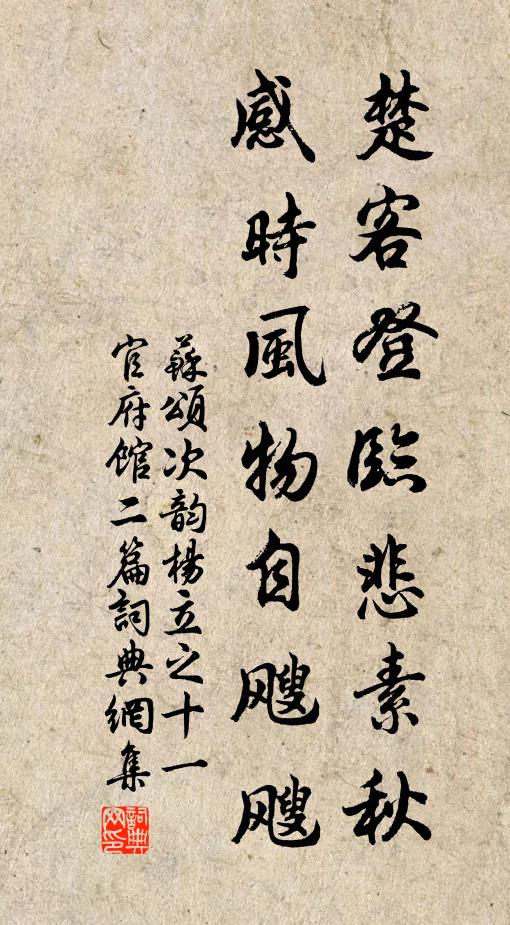 楚客登臨悲素秋
感時風物自颼颼
蘇頌次韵楊立之十一
官府館二篇詞典網集
詞典
网印